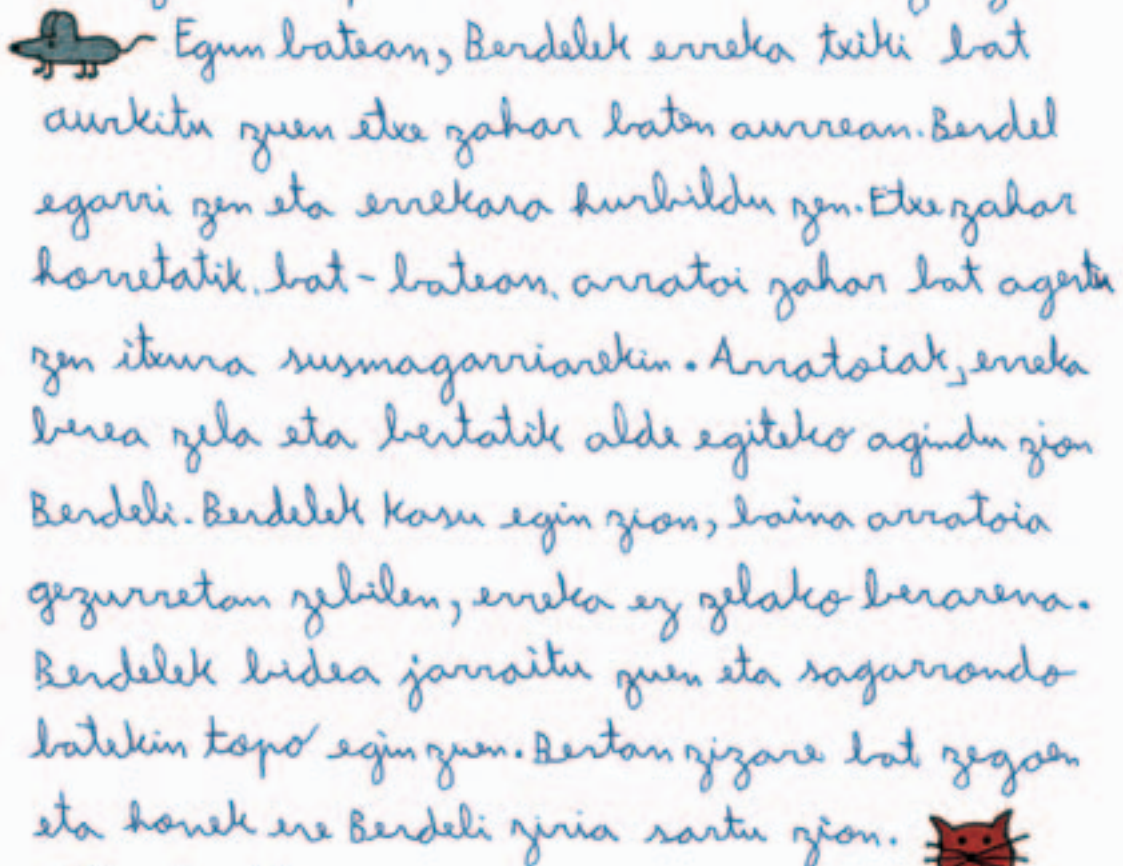 Egun batean, Berdelek erreka txiki bat
aurkitu zuen etxe zahar baten aurrean. Berdel
egarri zen eta errekara hurbildu zen. Etxe zahar
horretatik, bat-batean, arratoi zahar bat agertu
zen itxura susmagarriarekin. Arratoiak, erreka
berea zela eta bertatik alde egiteko agindu zion
Berdeli. Berdelek kasu egin zion, baina arratoia
gezurretan zebilen, erreka ez zelako berarena.
Berdelek bidea jarraitu zuen eta sagarrondo
batekin topo egin zuen. Bertan zizare bat zegoen
eta honek ere Berdeli ziria sartu zion.